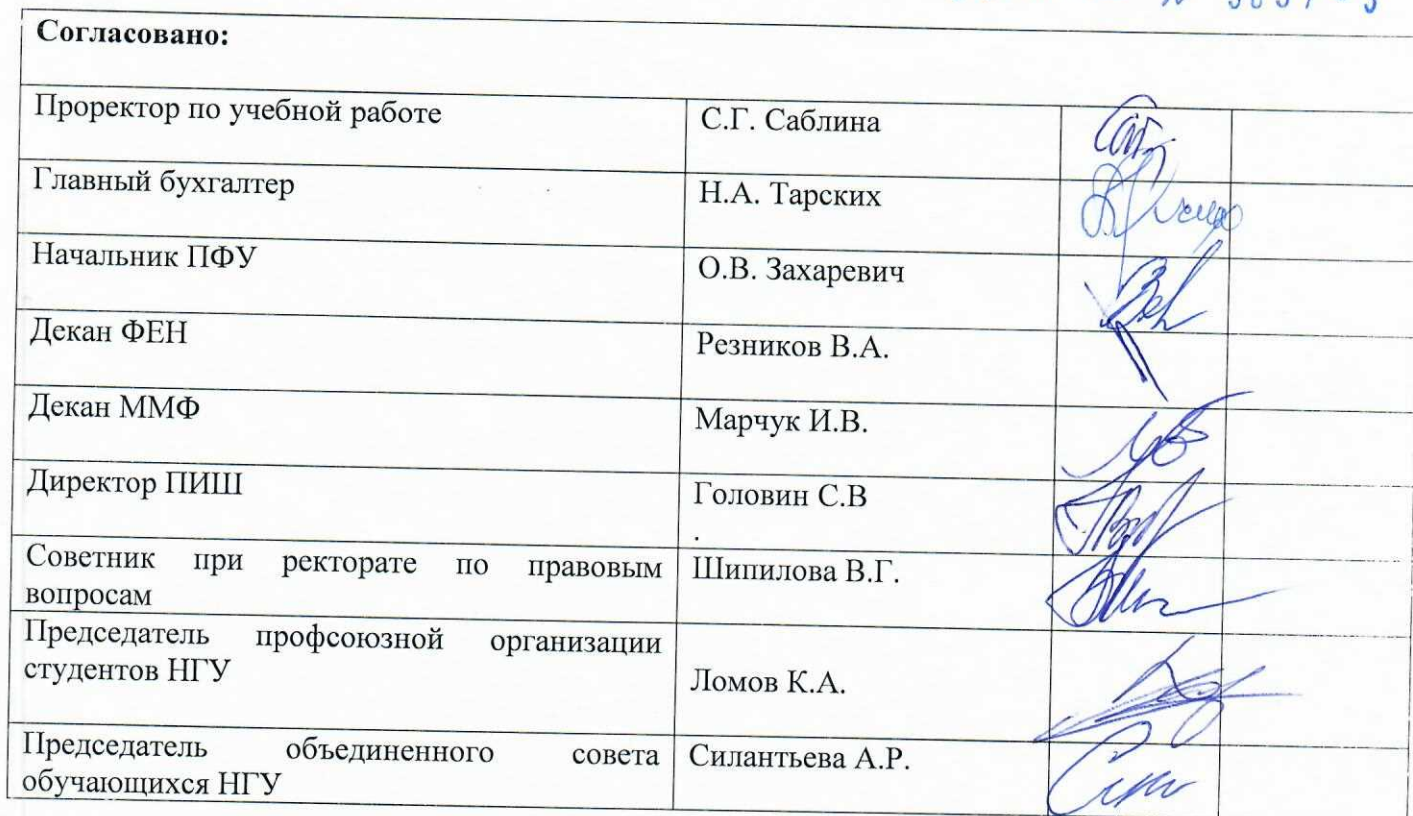 Согласовано:
Проректор по учебной работе
С.Г. Саблина
Главный бухгалтер
Н.А. Тарских
Начальник ПФУ
О.В. Захаревич
Декан ФЕН
Резников В.А.
Декан ММФ
Марчук И.В.
Директор ПИШ
Головин С.В
.
Советник при ректорате по правовым
вопросам
Шипилова В.Г.
Председатель профсоюзной организации
студентов НГУ
Ломов К.А.
Председатель объединенного совета
обучающихся НГУ
Силантьева А.Р.